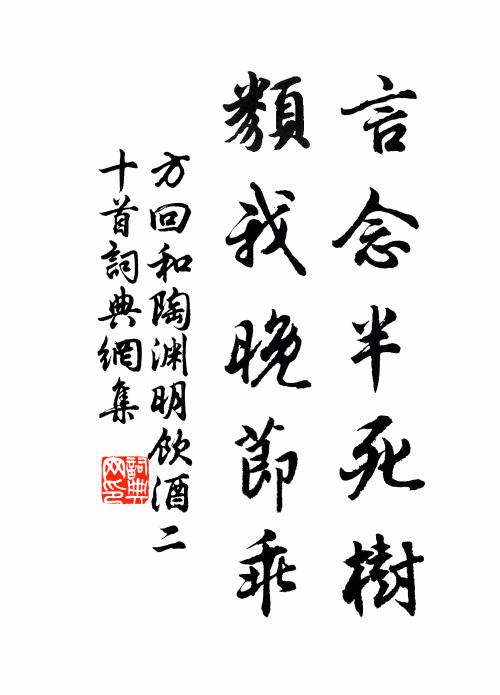 言念半死樹
類我晚節乖
方回和陶淵明飲酒二
十首詞典網集
詞典網印